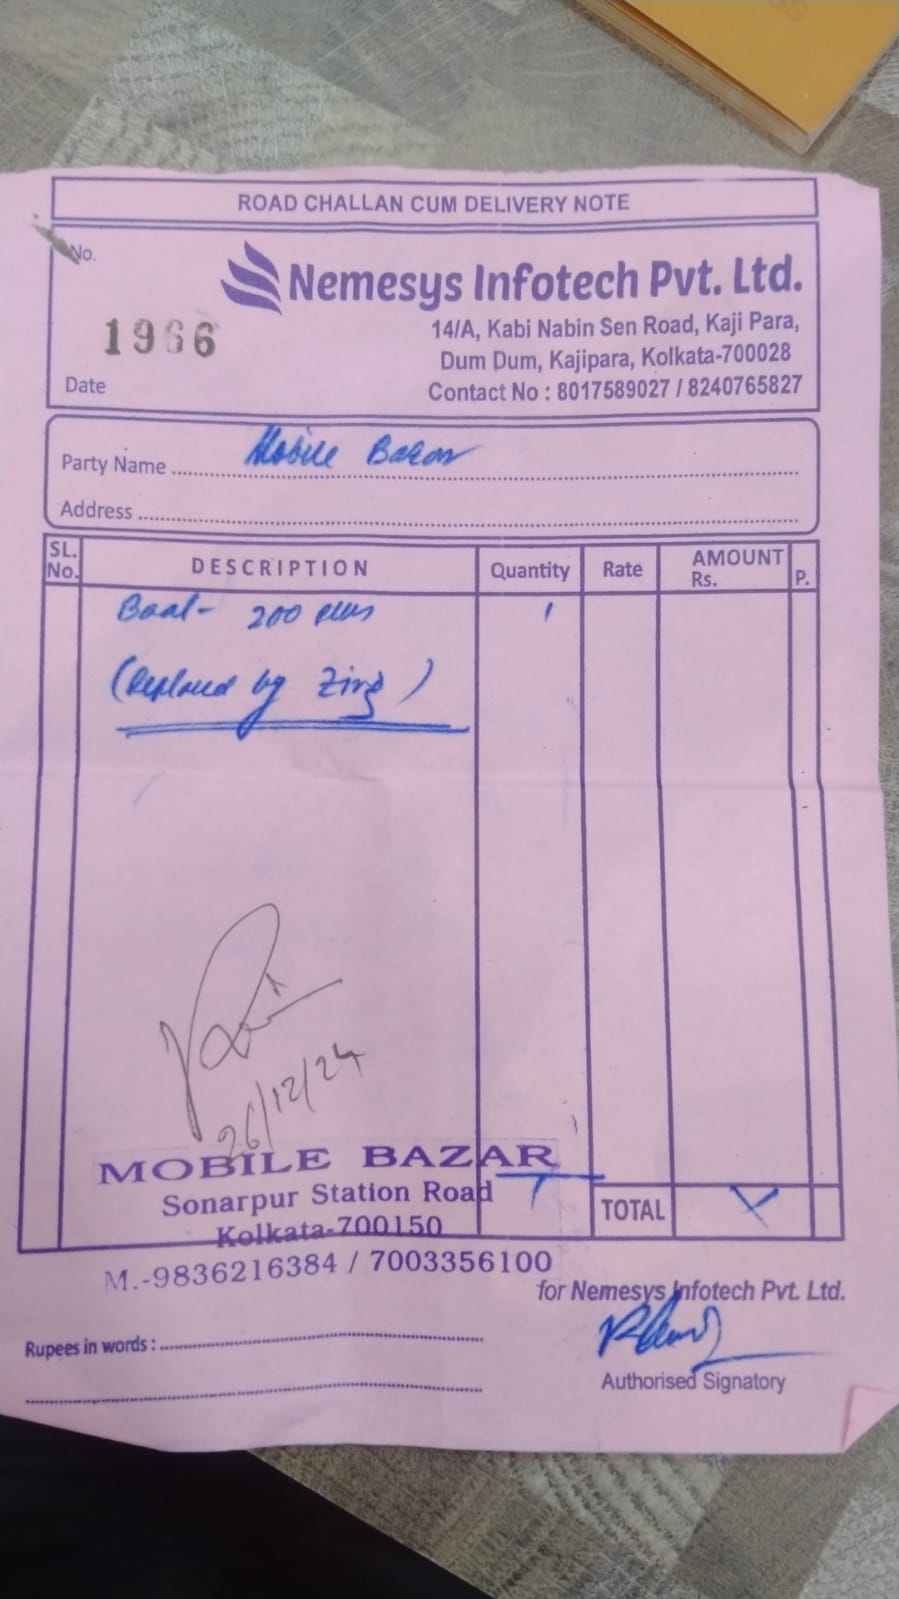 ROAD CHALLAN CUM DELIVERY NOTE
No.
1966
Date
Nemesys Infotech Pvt. Ltd.
14/A, Kabi Nabin Sen Road, Kaji Para,
Dum Dum, Kajipara, Kolkata-700028
Contact No : 8017589027 / 8240765827
Party Name Mobile Bazar
Address
SL. No. DESCRIPTION Quantity Rate AMOUNT Rs. P.
200 1
by
26/12/24
MOBILE BAZAR
Sonarpur Station Road
Kolkata-700150
M.-9836216384 / 7003356100
1 TOTAL X
for Nemesys Infotech Pvt. Ltd.
Rupees in words :
Authorised Signatory